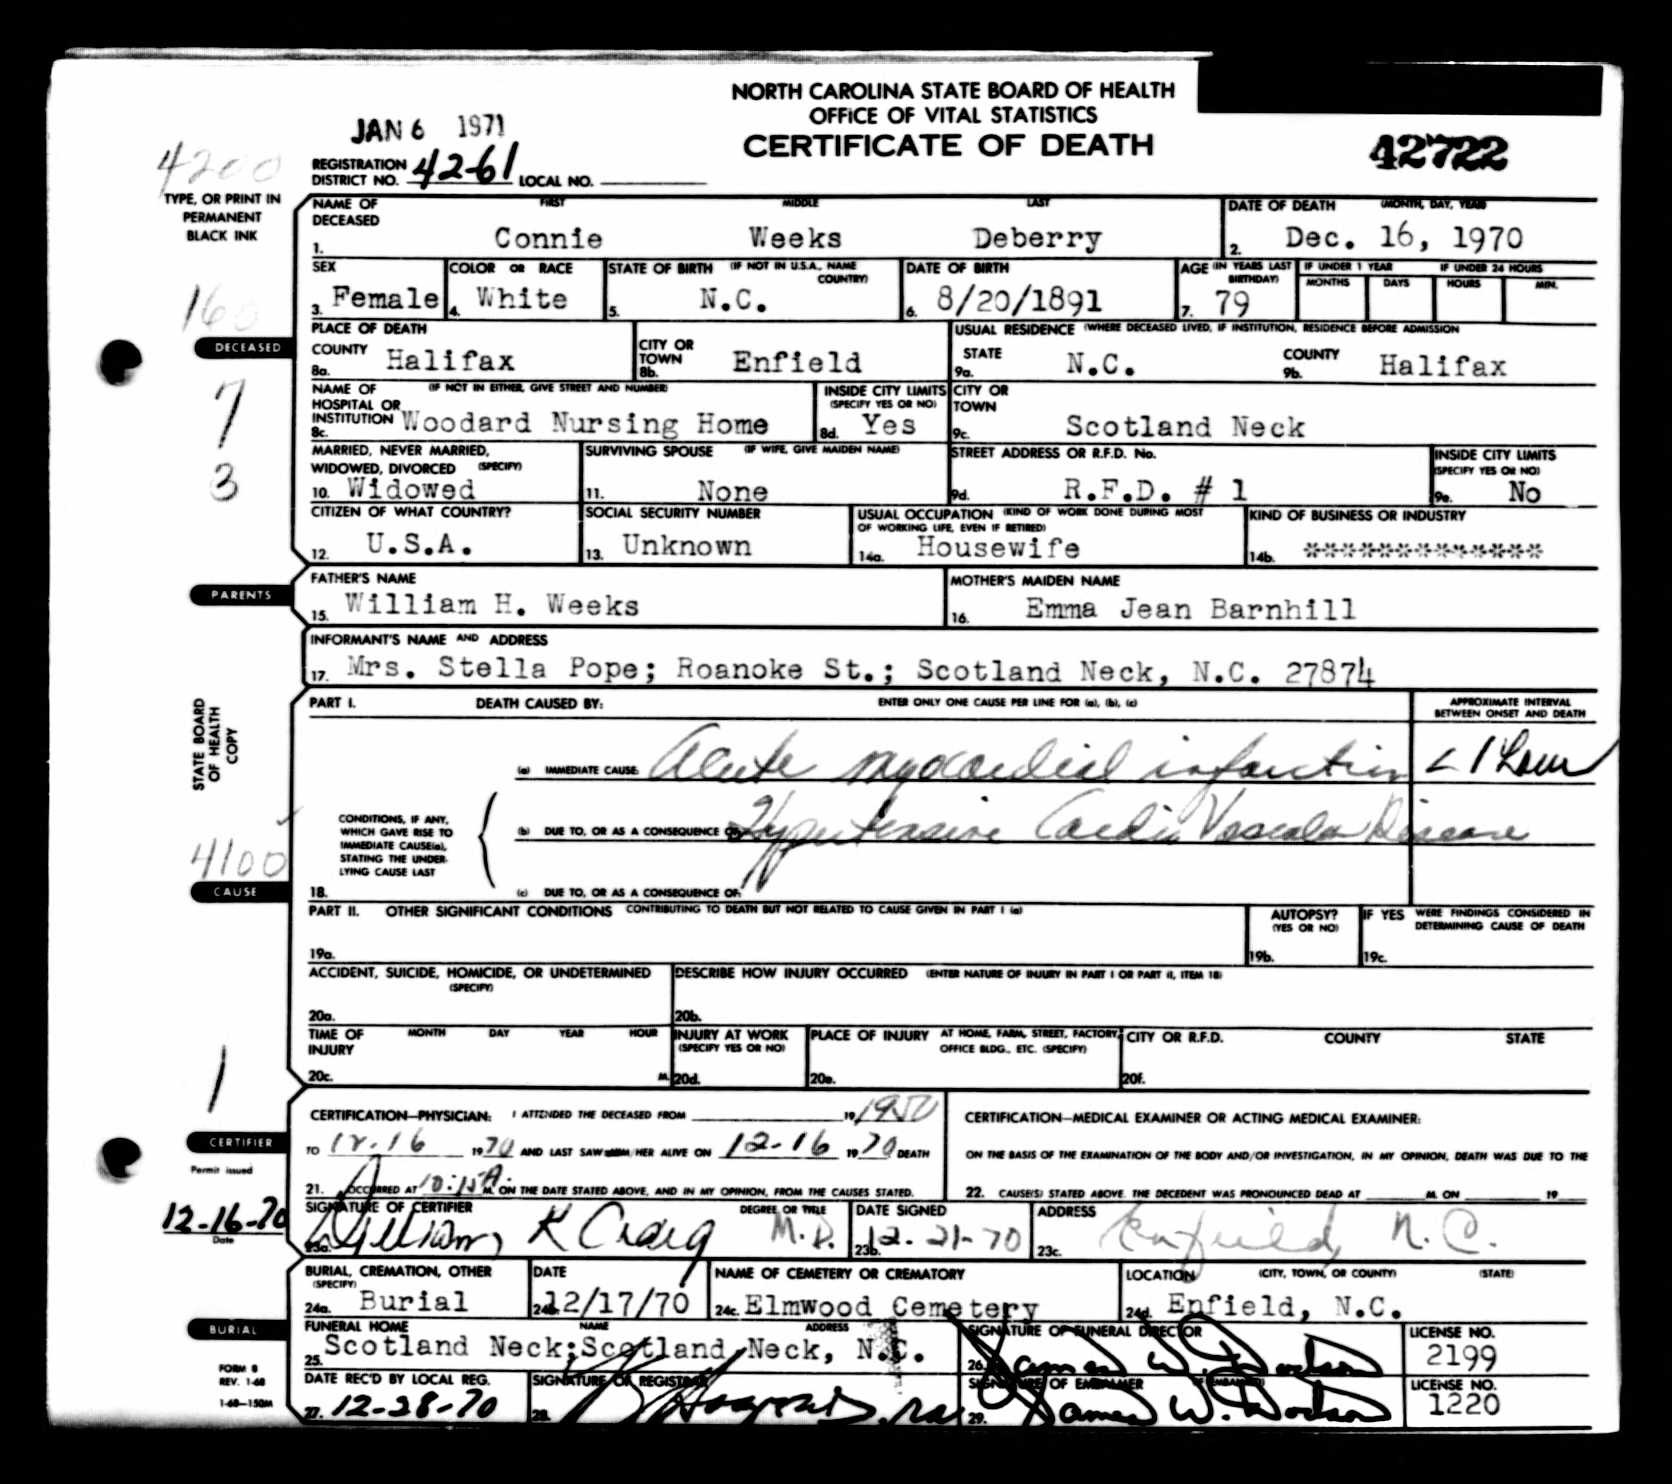 NORTH CAROLINA STATE BOARD OF HEALTH
OFFICE OF VITAL STATISTICS
CERTIFICATE OF DEATH
JAN 6 1971
42722
4200
REGISTRATION DISTRICT NO. 42-61 LOCAL NO.
TYPE, OR PRINT IN PERMANENT BLACK INK
NAME OF DECEASED FIRST MIDDLE LAST
1. Connie Weeks Deberry
DATE OF DEATH (MONTH, DAY, YEAR)
2. Dec. 16, 1970
SEX
3. Female
COLOR OR RACE
4. White
STATE OF BIRTH (IF NOT IN U.S.A., NAME COUNTRY)
5. N.C.
DATE OF BIRTH
6. 8/20/1891
AGE (IN YEARS LAST BIRTHDAY)
7. 79
IF UNDER 1 YEAR MONTHS DAYS
IF UNDER 24 HOURS HOURS MIN.
160
DECEASED
7
1
3
PLACE OF DEATH
COUNTY
8a. Halifax
CITY OR TOWN
8b. Enfield
USUAL RESIDENCE (WHERE DECEASED LIVED, IF INSTITUTION, RESIDENCE BEFORE ADMISSION
STATE
9a. N.C.
COUNTY
9b. Halifax
NAME OF HOSPITAL OR INSTITUTION (IF NOT IN EITHER, GIVE STREET AND NUMBER)
8c. Woodard Nursing Home
INSIDE CITY LIMITS (SPECIFY YES OR NO)
8d. Yes
CITY OR TOWN
9c. Scotland Neck
MARRIED, NEVER MARRIED, WIDOWED, DIVORCED (SPECIFY)
10. Widowed
SURVIVING SPOUSE (IF WIFE, GIVE MAIDEN NAME)
11. None
STREET ADDRESS OR R.F.D. No.
9d. R.F.D. # 1
INSIDE CITY LIMITS (SPECIFY YES OR NO)
9e. No
CITIZEN OF WHAT COUNTRY?
12. U.S.A.
SOCIAL SECURITY NUMBER
13. Unknown
USUAL OCCUPATION (KIND OF WORK DONE DURING MOST OF WORKING LIFE, EVEN IF RETIRED)
14a. Housewife
KIND OF BUSINESS OR INDUSTRY
14b. *************
PARENTS
FATHER'S NAME
15. William H. Weeks
MOTHER'S MAIDEN NAME
16. Emma Jean Barnhill
INFORMANT'S NAME AND ADDRESS
17. Mrs. Stella Pope; Roanoke St.; Scotland Neck, N.C. 27874
STATE BOARD OF HEALTH COPY
PART I. DEATH CAUSED BY: ENTER ONLY ONE CAUSE PER LINE FOR (a), (b), (c)
APPROXIMATE INTERVAL BETWEEN ONSET AND DEATH
(a) IMMEDIATE CAUSE: Acute myocardial infarction < 1 hour
CONDITIONS, IF ANY, WHICH GAVE RISE TO IMMEDIATE CAUSE(a), STATING THE UNDER-LYING CAUSE LAST
(b) DUE TO, OR AS A CONSEQUENCE OF: Hypertensive Cardio Vascular Disease
4100
CAUSE
18. (c) DUE TO, OR AS A CONSEQUENCE OF:
PART II. OTHER SIGNIFICANT CONDITIONS CONTRIBUTING TO DEATH BUT NOT RELATED TO CAUSE GIVEN IN PART I (a)
19a.
AUTOPSY? (YES OR NO)
19b.
IF YES WERE FINDINGS CONSIDERED IN DETERMINING CAUSE OF DEATH
19c.
ACCIDENT, SUICIDE, HOMICIDE, OR UNDETERMINED (SPECIFY)
20a.
DESCRIBE HOW INJURY OCCURRED (ENTER NATURE OF INJURY IN PART I OR PART II, ITEM 18)
20b.
TIME OF INJURY MONTH DAY YEAR HOUR
20c. M.
INJURY AT WORK (SPECIFY YES OR NO)
20d.
PLACE OF INJURY AT HOME, FARM, STREET, FACTORY, OFFICE BLDG., ETC. (SPECIFY)
20e.
CITY OR R.F.D. COUNTY STATE
20f.
1
CERTIFIER
CERTIFICATION—PHYSICIAN: I ATTENDED THE DECEASED FROM 19 1950
TO 12-16 1970 AND LAST SAW HIM/HER ALIVE ON 12-16 1970 DEATH
21. OCCURRED AT 10:15A. M. ON THE DATE STATED ABOVE, AND IN MY OPINION, FROM THE CAUSES STATED.
CERTIFICATION—MEDICAL EXAMINER OR ACTING MEDICAL EXAMINER:
ON THE BASIS OF THE EXAMINATION OF THE BODY AND/OR INVESTIGATION, IN MY OPINION, DEATH WAS DUE TO THE
22. CAUSE(S) STATED ABOVE. THE DECEDENT WAS PRONOUNCED DEAD AT M. ON 19
Permit issued
12-16-70
Date
SIGNATURE OF CERTIFIER
23a. William K Craig
DEGREE OR TITLE
M.D.
DATE SIGNED
23b. 12-21-70
ADDRESS
23c. Enfield, N.C.
BURIAL, CREMATION, OTHER (SPECIFY)
24a. Burial
DATE
24b. 12/17/70
NAME OF CEMETERY OR CREMATORY
24c. Elmwood Cemetery
LOCATION (CITY, TOWN, OR COUNTY) (STATE)
24d. Enfield, N.C.
BURIAL
FUNERAL HOME NAME ADDRESS
25. Scotland Neck;Scotland Neck, N.C.
SIGNATURE OF FUNERAL DIRECTOR
26. James W. Dodson
LICENSE NO.
2199
FORM 8
REV. 1-68
1-68—150M
DATE REC'D BY LOCAL REG.
27. 12-28-70
SIGNATURE OF REGISTRAR
28.
SIGNATURE OF EMBALMER
29. James W. Dodson
LICENSE NO.
1220